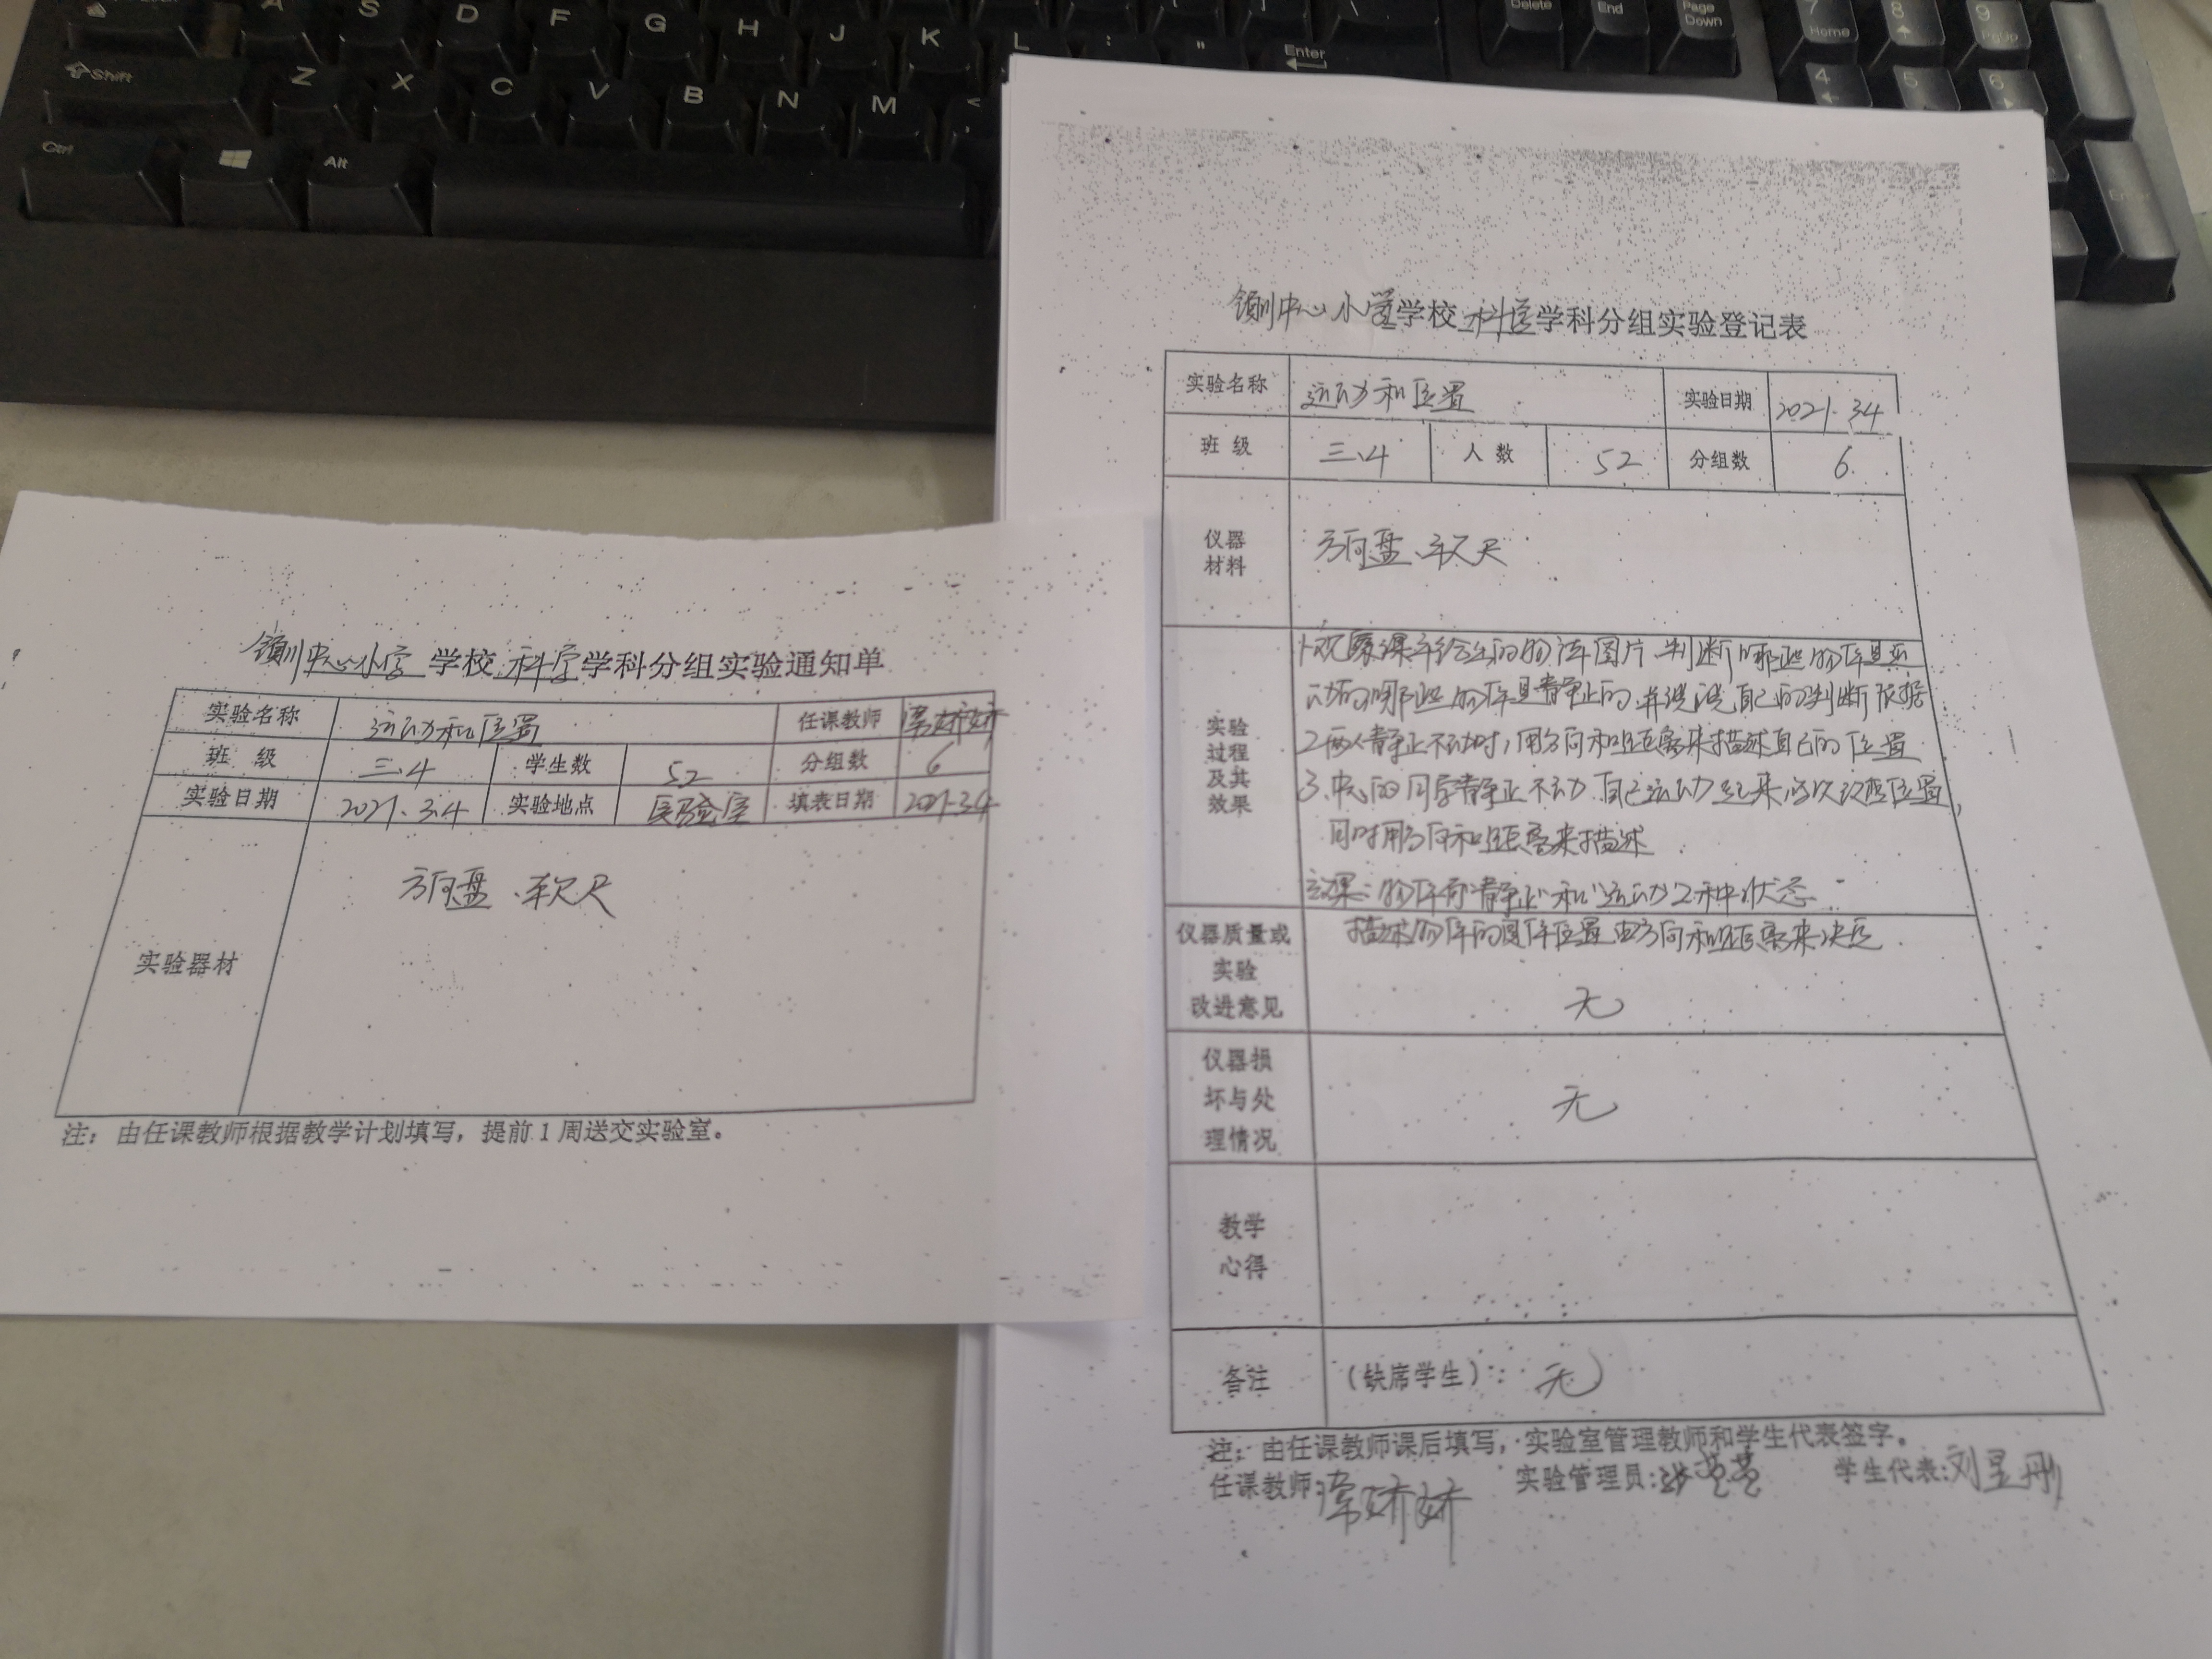 A S D F G H J K L : "
Enter
Delete End Page Down
7 Home 8 9 PgUp
4 5 6
Shift Z X C V B N M <
Ctrl Alt
领川中心小学 学校 科学 学科分组实验通知单
实验名称 运动和位置 任课教师 常娇娇
班 级 三.4 学生数 52 分组数 6
实验日期 2021.3.4 实验地点 实验室 填表日期 2021.3.4
实验器材 方向盘、软尺
注：由任课教师根据教学计划填写，提前1周送交实验室。
领川中心小学 学校 科学 学科分组实验登记表
实验名称 运动和位置 实验日期 2021.3.4
班 级 三.4 人 数 52 分组数 6
仪器材料 方向盘、软尺
实验过程及其效果
1.观察课本给出的物体图片.判断哪些物体是运
动的哪些物体是静止的.并说说自己的判断依据
2.两人静止不动时，用方向和距离来描述自己的位置
3.中心的同学静止不动.自己运动起来多次改变位置，
同时用方向和距离来描述
效果：物体有"静止"和"运动"2种状态
描述物体的具体位置由方向和距离来决定
仪器质量或实验改进意见 无
仪器损坏与处理情况 无
教学心得
备注 （缺席学生）：无
注：由任课教师课后填写，实验室管理教师和学生代表签字。
任课教师：常娇娇 实验管理员： 学生代表：刘昱彤